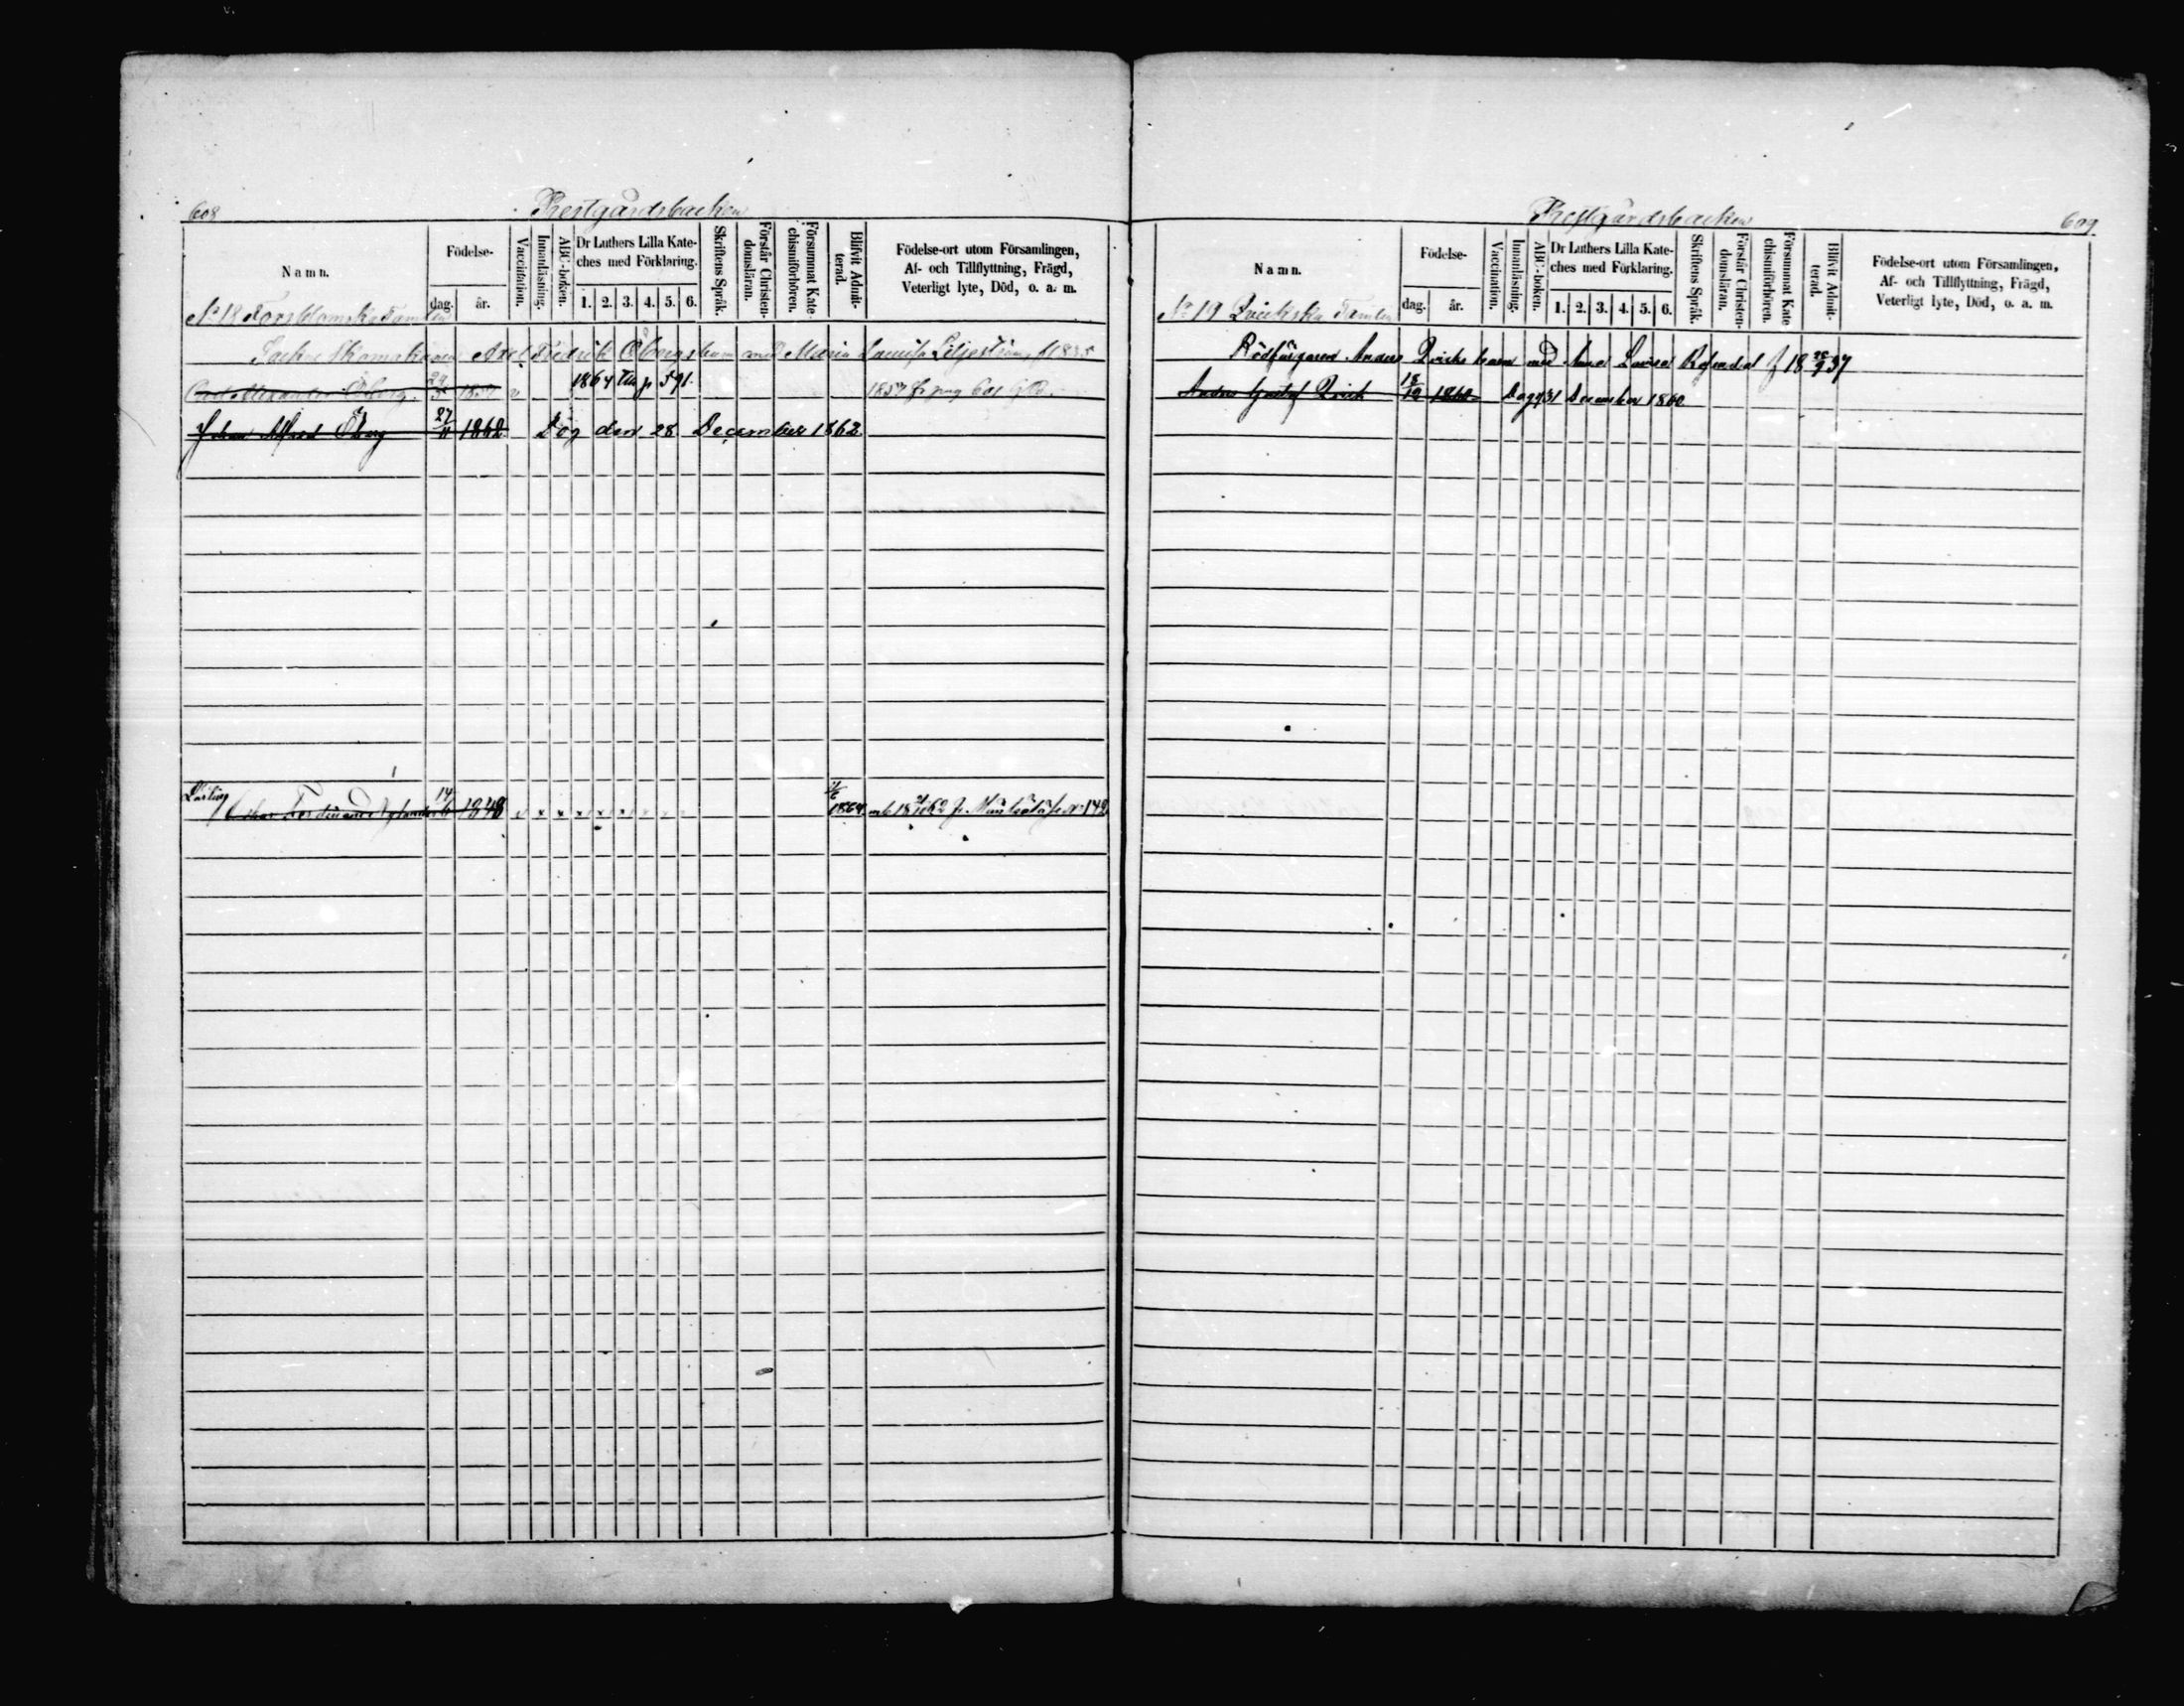 608
Prestgårdsbacken
Namn.
Födelse-
dag.
år.
Vaccination.
Innanläsning.
ABC-boken.
Dr Luthers Lilla Kate-
ches med Förklaring.
1. 2. 3. 4. 5. 6.
Skriftens Språk.
Förstår Christen-
domsläran.
Försummat Kate
chismiförhören.
Blifvit Admit-
terad.
Födelse-ort utom Församlingen,
Af- och Tillflyttning, Frägd,
Veterligt lyte, Död, o. a. m.
No 18
Axel Fredrik Öbergs barn med Maria Lovisa Liljeström f 1835
Alexander Öberg 29/5 1857 v 1864 till p 591. 1857 fr pag 601
Johan Alfred Öberg 27/11 1862 Dog den 28 December 1862
Lärling
Oskar Ferdinand Nylander 14/6 1848 v x x x x x x 1864
Prestgårdsbacken
609
Namn.
Födelse-
dag.
år.
Vaccination.
Innanläsning.
ABC-boken.
Dr Luthers Lilla Kate-
ches med Förklaring.
1. 2. 3. 4. 5. 6.
Skriftens Språk.
Förstår Christen-
domsläran.
Försummat Kate
chismiförhören.
Blifvit Admit-
terad.
Födelse-ort utom Församlingen,
Af- och Tillflyttning, Frägd,
Veterligt lyte, Död, o. a. m.
No 19 Qvickska Tomten
Rödfärgaren Anders Qvicks barn med Anna Lovisa Rosendal f 18 37
Anders Gustaf Qvick 18/12 1860 Dog 31 December 1860